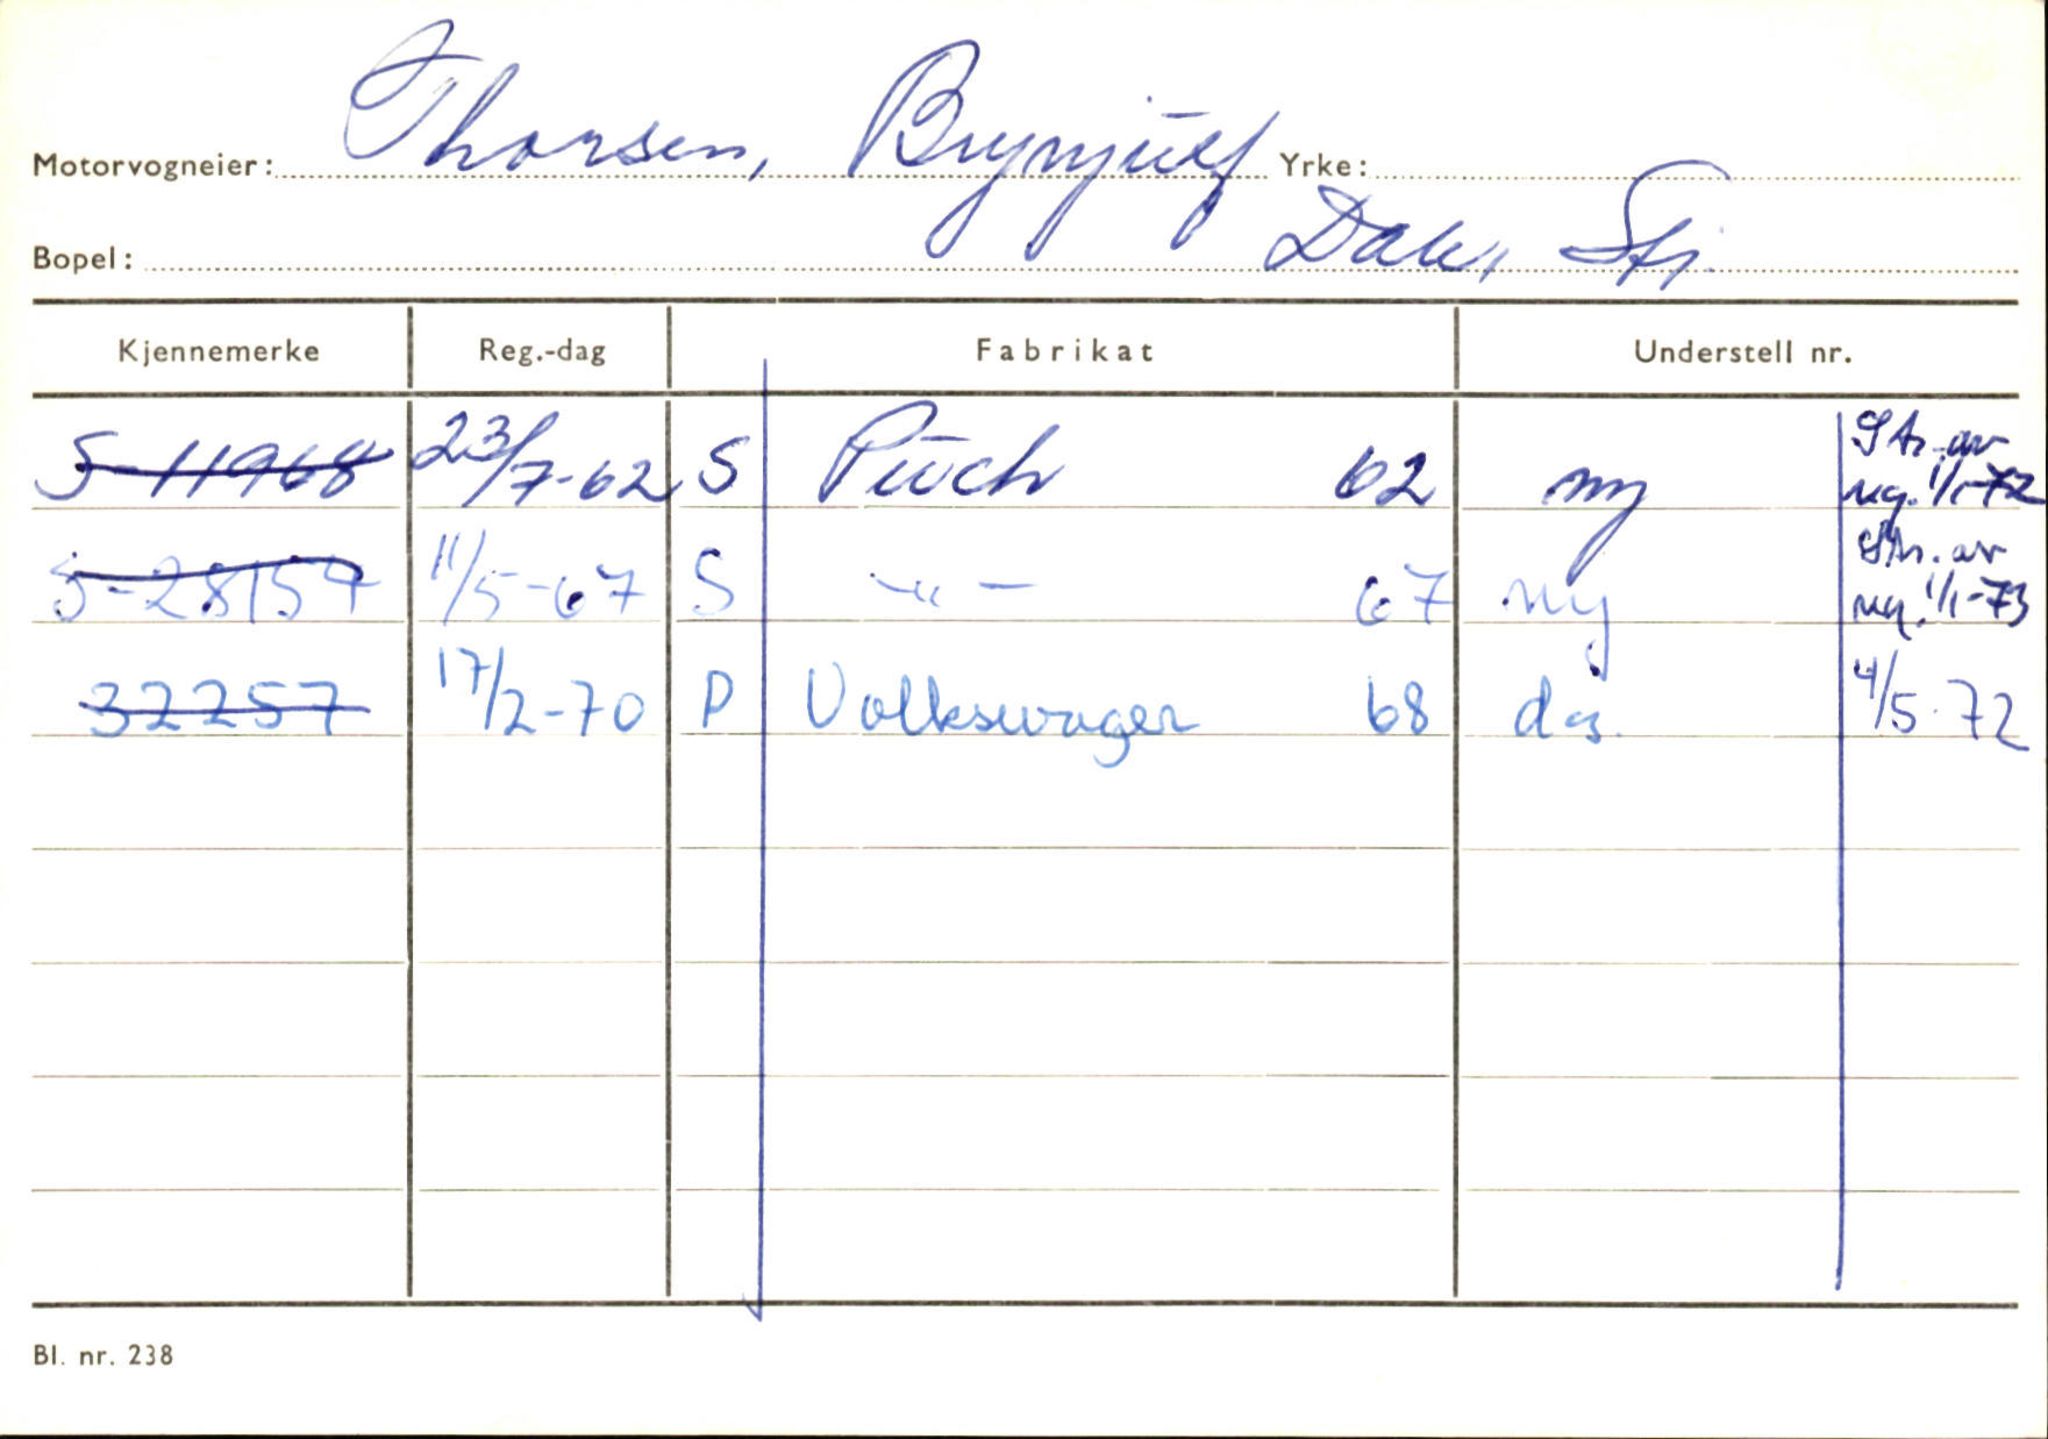 Motorvogneier: Thorsen, Brynjulf Yrke:
Bopel: Dale, Sfj.
Kjennemerke Reg.-dag Fabrikat Understell nr.
S-11968 23/7-62 S Puch 62 ny Str. av
reg. 1/1-72
S-28154 11/5-67 S -"- 67 ny Str. av
reg. 1/1-73
32257 17/2-70 P Volkswagen 68 do. 4/5-72
Bl. nr. 238